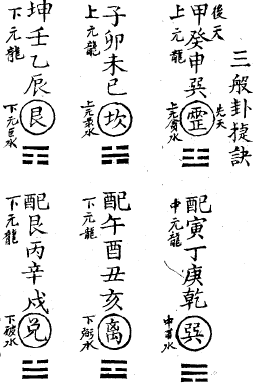 三般卦捷訣
後天
甲癸申巽
先天
上元龍
上元貪水
配寅丁庚乾巽
中元龍
子卯未巳坎
上元龍
配午酉丑亥离
下元龍
下弼水
坤壬乙辰艮
下元龍
下元巨水
配艮丙辛戌兑
下元龍
下破水